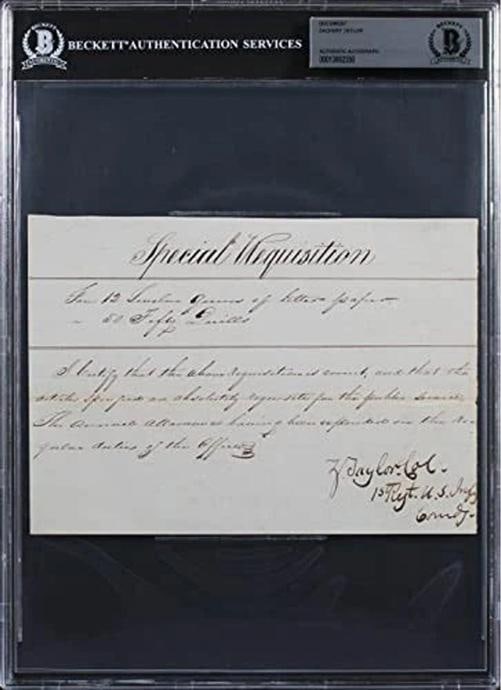 BECKETT
BECKETT AUTHENTICATION SERVICES
DOCUMENT
ZACHARY TAYLOR
AUTHENTIC AUTOGRAPH
BECKETT
Special Requisition
For 12 Quires of letter paper
" 50 Fifty Quills
I Certify that the above requisition is correct, and that the
articles specified are absolutely requisite for the public service
The annual allowance having been expended in the re-
gular duties of the Office
Z Taylor Col.
1st Regt. U.S. Infy
Comdg.